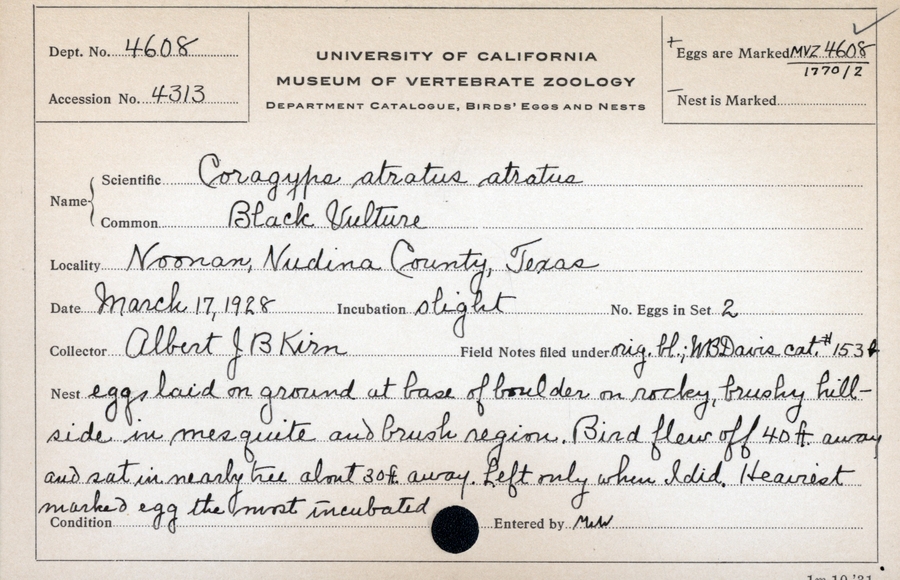 Dept. No. 4608
Accession No. 4313
UNIVERSITY OF CALIFORNIA
MUSEUM OF VERTEBRATE ZOOLOGY
DEPARTMENT CATALOGUE, BIRDS' EGGS AND NESTS
+ Eggs are Marked MVZ 4608
1770/2
- Nest is Marked
Name
Scientific Coragyps atratus atratus
Common Black Vulture
Locality Noonan, Nudina County, Texas
Date March 17, 1928 Incubation slight No. Eggs in Set 2
Collector Albert J B Kirn Field Notes filed under orig. bl.; WBDavis cat. #
Nest eggs laid on ground at base of boulder on rocky, brushy hill-
side in mesquite and brush region. Bird flew off 40 ft. away
and sat in nearby tree about 30 ft. away. Left only when I did. Heaviest
marked egg the most incubated
Condition Entered by
1m 10 '31